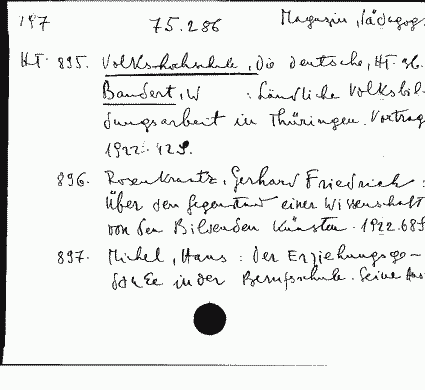 197 75.286 Magazin, Pädagog.
HT. 895. Volkshochschule, Die deutsche, HT. 36.
Bandert, W : Ländliche Volksbil-
dungsarbeit in Thüringen. Vortrag
1922. 42 S.
896. Rosenkrantz, Gerhard Friedrich :
Über den Gegenstand einer Wissenschaft
von den Bildenden Künsten. 1922. 68 S
897. Michel, Hans : Der Erziehungsge-
danke in der Berufsschule. Seine